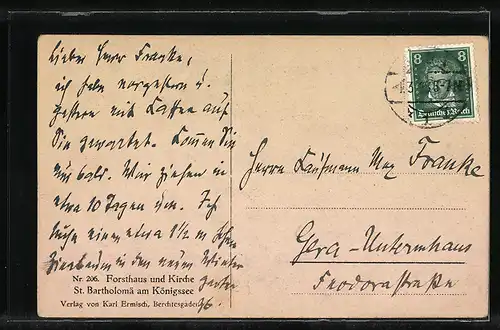 Lieber Herr Franke,
ich habe vorgestern u.
gestern mit Kaffee auf
Sie gewartet. Kommen Sie
nur bald. Wir ziehen in
etwa 10 Tagen um. Ich
suche einen etwa 1½ m
in den neuen Winter
garten
Nr. 206. Forsthaus und Kirche
St. Bartholomä am Königssee
Verlag von Karl Ermisch, Berchtesgaden
8 8
Deutsches Reich
Herrn Kaufmann Max Franke
Gera-Untermhaus
Feodorastraße